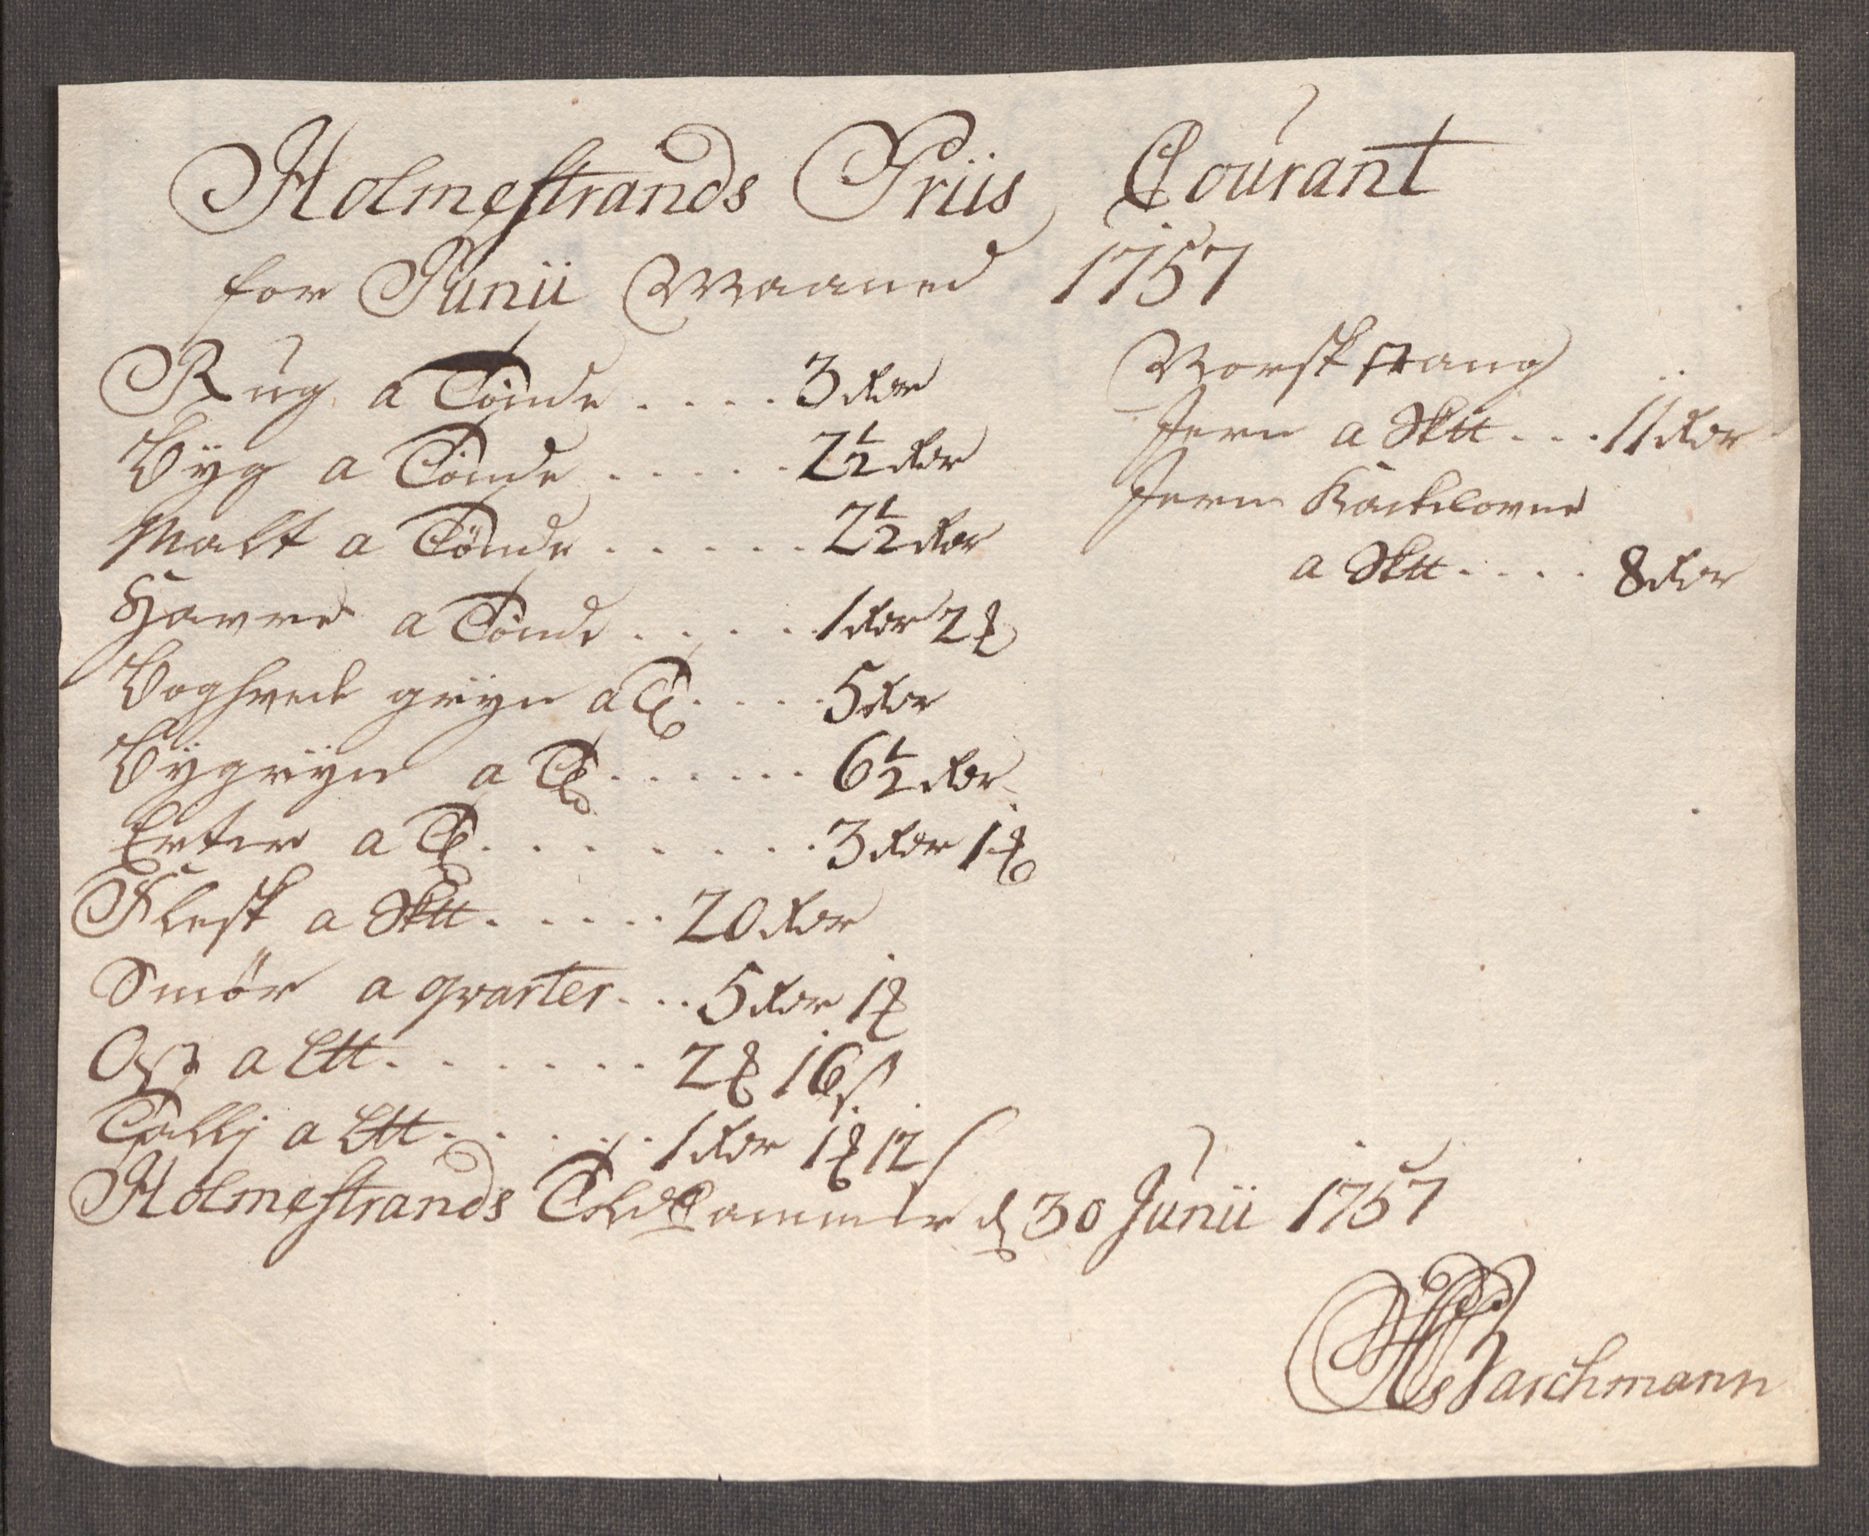 Holmestrands Priis Courant
for Junii Maaned 1757
Rug a Tønde . . . . 3 Rdr
Byg a Tønde . . . . . 2½ Rdr
Malt a Tønde . . . . . 2½ Rdr
Havre a Tønde . . . . . 1 Rdr 2 ꝑ
Boghvede gryn a Tꝑ . . . . 5 Rdr
Bygryn a Tꝑ . . . . . . 6½ Rdr
Erter a Tꝑ . . . . . . . . 3 Rdr 1 ꝑ
Flesk a Sktt . . . . . 20 Rdr
Smør a qvarter . . . 5 Rdr 1 ꝑ
Ost a Ltt . . . . . . . 2 ꝑ 16 ß
Tallj a Ltt . . . . . . 1 Rdr 1 ꝑ 12 ß
Norsk stang
Jern a Sktt . . . 11 Rdr
Jern Kackelovne
a Sktt . . . . 8 Rdr
Holmestrands Told Cammer d 30 Junii 1757
Barchmann